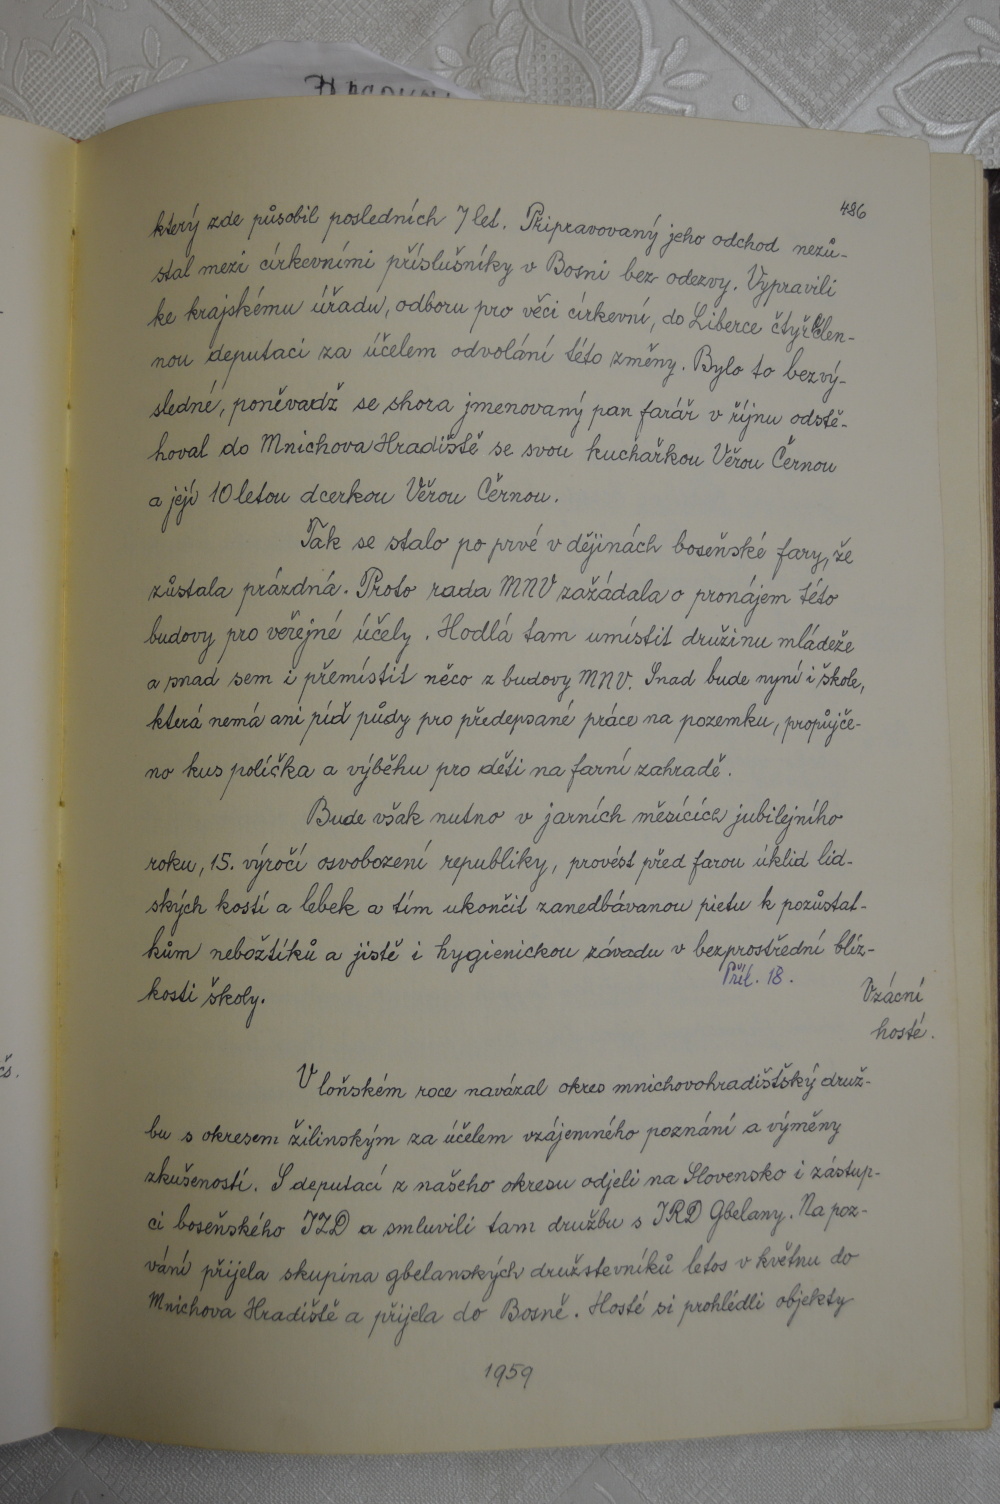 486
který zde působil posledních 7 let. Připravovaný jeho odchod nezů-
stal mezi církevními příslušníky v Bosni bez odezvy. Vypravili
ke krajskému úřadu, odboru pro věci církevní, do Liberce čtyřčlen-
nou deputaci za účelem odvolání této změny. Bylo to bezvý-
sledné, poněvadž se shora jmenovaný pan farář v říjnu odstě-
hoval do Mnichova Hradiště se svou kuchařkou Věrou Černou
a její 10letou dcerkou Věrou Černou.
Tak se stalo po prvé v dějinách boseňské fary, že
zůstala prázdná. Proto rada MNV zažádala o pronájem této
budovy pro veřejné účely. Hodlá tam umístit družinu mládeže
a snad sem i přemístit něco z budovy MNV. Snad bude nyní i škole,
která nemá ani píď půdy pro předepsané práce na pozemku, propůjče-
no kus políčka a výběhu pro děti na farní zahradě.
Bude však nutno v jarních měsících jubilejního
roku, 15. výročí osvobození republiky, provést před farou úklid lid-
ských kostí a lebek a tím ukončit zanedbávanou pietu k pozůstat-
kům nebožtíků a jistě i hygienickou závadu v bezprostřední blíz-
kosti školy.
Příl. 18.
Vzácní
hosté.
V loňském roce navázal okres mnichovohradišťský druž-
bu s okresem žilinským za účelem vzájemného poznání a výměny
zkušeností. S deputací z našeho okresu odjeli na Slovensko i zástup-
ci boseňského JZD a smluvili tam družbu s JRD Gbelany. Na poz-
vání přijela skupina gbelanských družstevníků letos v květnu do
Mnichova Hradiště a přijela do Bosně. Hosté si prohlédli objekty
1959
čs.